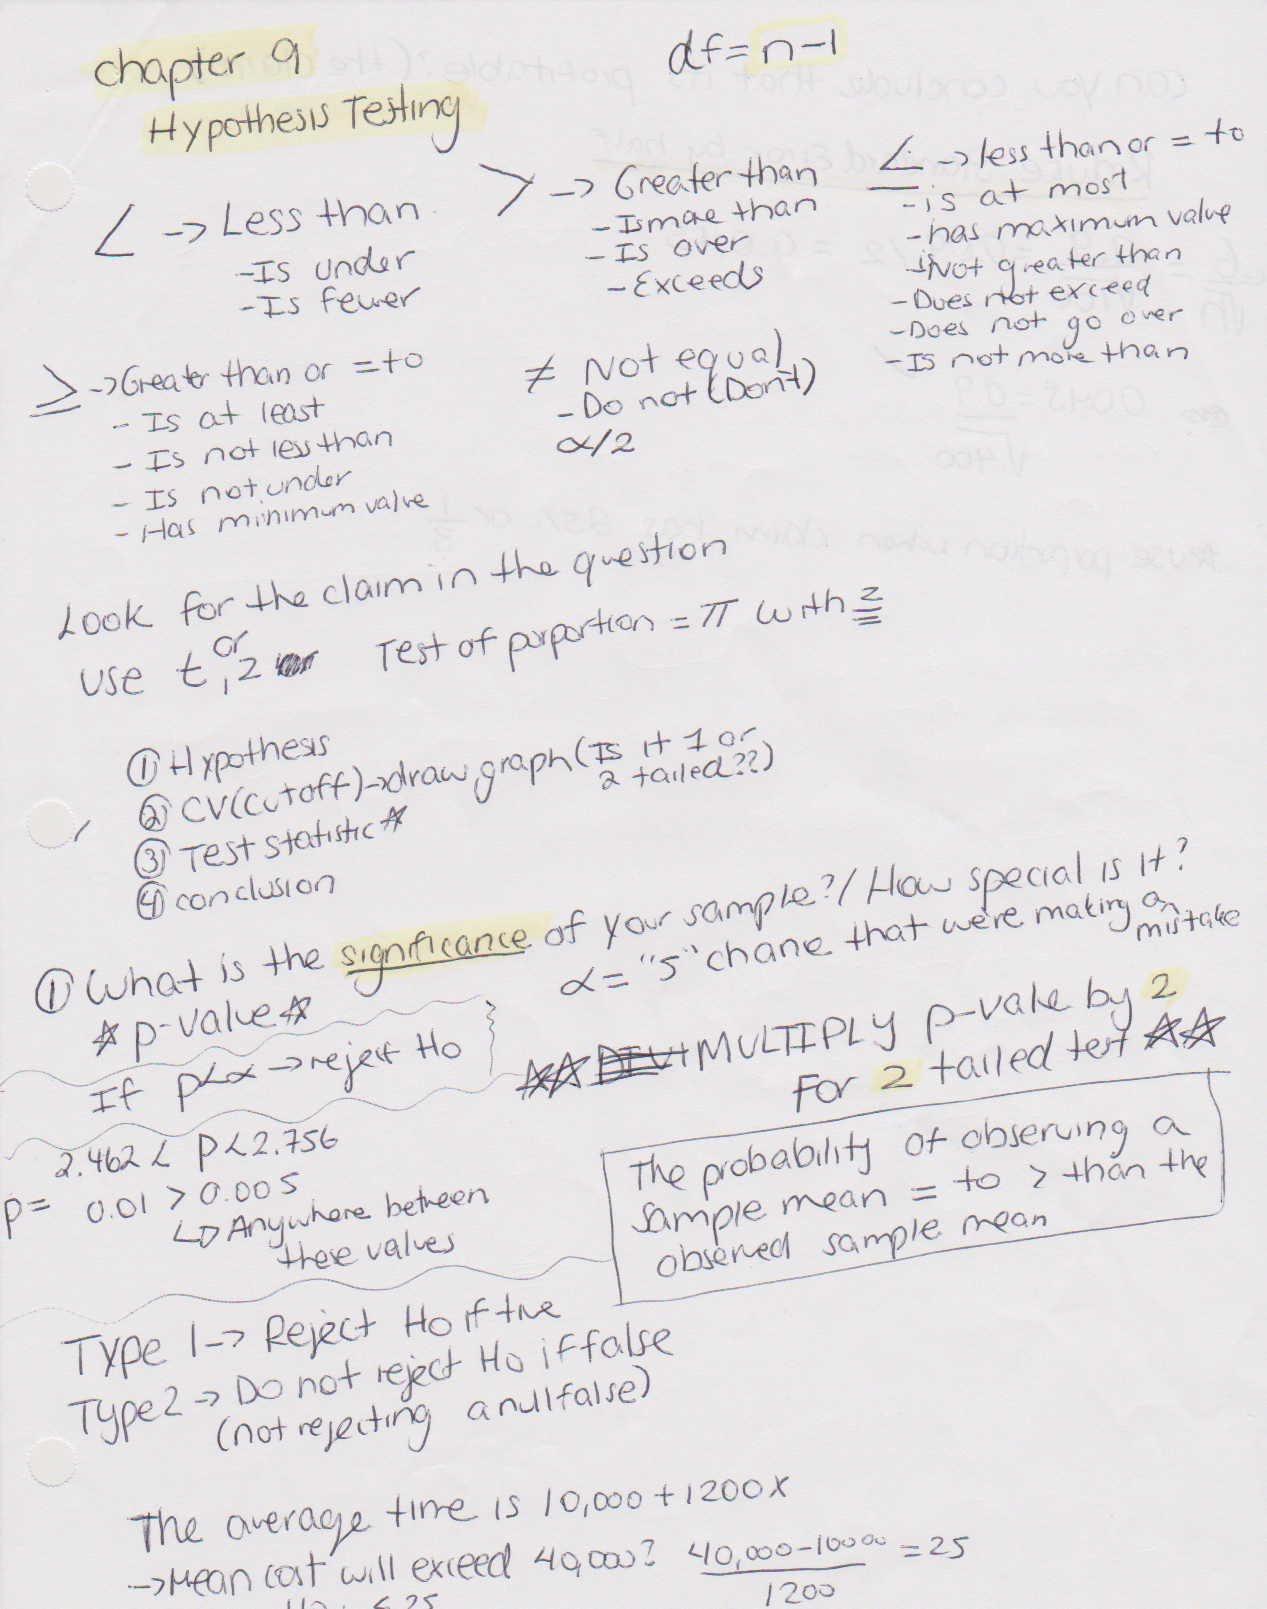 chapter 9
Hypothesis Testing
df = n-1
< -> Less than
-Is under
-Is fewer
> -> Greater than
-Is more than
-Is over
-Exceeds
≤ -> less than or = to
-is at most
-has maximum value
-is Not greater than
-Does not exceed
-Does not go over
-Is not more than
≥ -> Greater than or = to
- Is at least
- Is not less than
- Is not under
- Has minimum value
≠ Not equal
- Do not (Don't)
α/2
Look for the claim in the question
use t, or z
Test of porportion = π with z
① Hypothesis
② CV(cutoff)->draw graph (Is it 1 or
2 tailed??)
③ Test statistic☆
④ conclusion
① What is the significance of your sample?/How special is it?
☆ p-value☆
α= "5" chane that we're making an
mistake
If p<α -> reject Ho
☆☆ MULTIPLY p-vale by 2
For 2 tailed test ☆☆
2.462 < P < 2.756
p= 0.01 > 0.005
↳ Anywhere between
these values
The probability of observing a
sample mean = to > than the
observed sample mean
Type 1-> Reject Ho if true
Type 2 -> Do not reject Ho if false
(not rejecting a null false)
The average time is 10,000 + 1200x
->Mean cost will exceed 40,000? 40,000-10000 = 25
1200
≤ 25